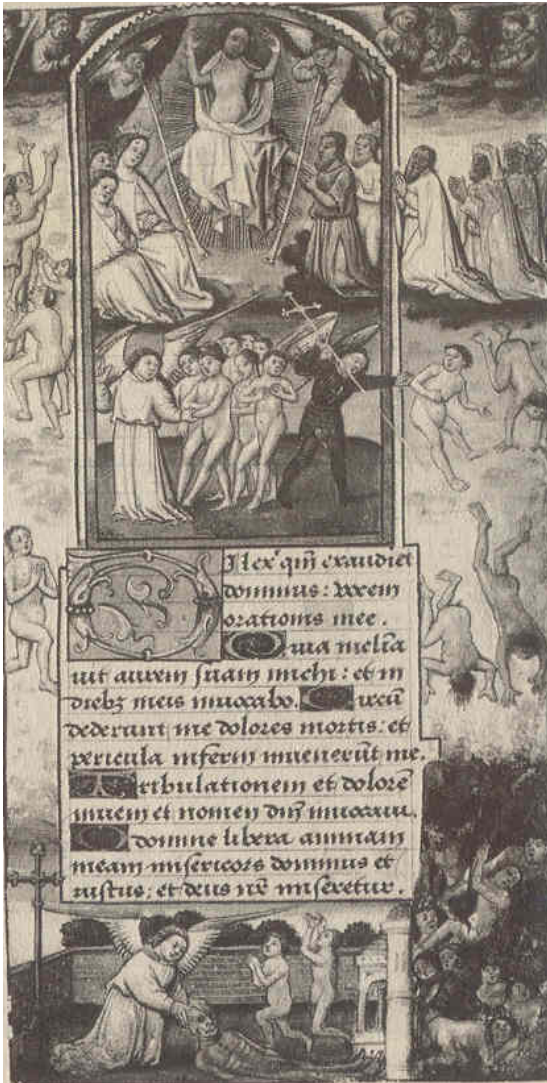 Dilexi qm̄ exaudiet
dominus: vocem
orationis mee.
Quia inclina
uit aurem suam michi: et in
diebꝫ meis inuocabo. Circũ
dederunt me dolores mortis: et
pericula inferni inuenerũt me.
Tribulationem et dolorē
inueni et nomen dñi inuocaui.
O domine libera animam
meam misericors dominus et
iustus: et deus nr̄ miseretur.